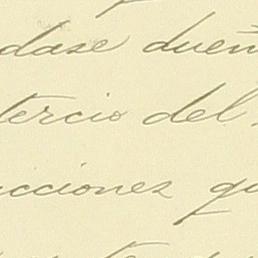 dase dueñ
tercio del
cciones qu